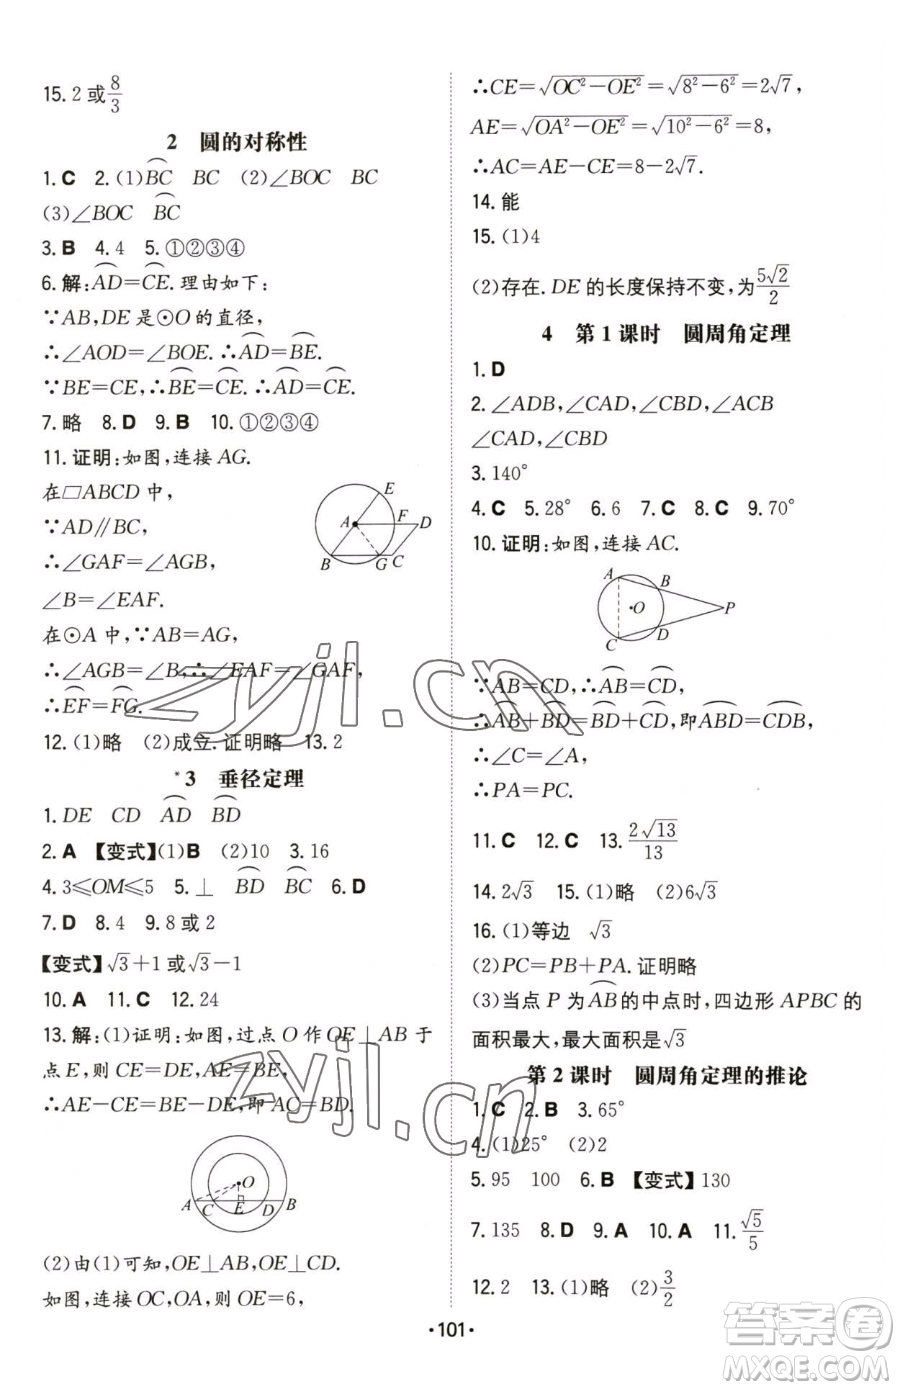 15. 2 或 8/3
2 圆的对称性
1. C 2. (1)⌒BC BC (2)∠BOC BC
(3)∠BOC ⌒BC
3. B 4. 4 5. ①②③④
6. 解:⌒AD=⌒CE. 理由如下:
∵AB,DE 是⊙O 的直径,
∴∠AOD=∠BOE. ∴⌒AD=⌒BE.
∵BE=CE,∴⌒BE=⌒CE. ∴⌒AD=⌒CE.
7. 略 8. D 9. B 10. ①②③④
11. 证明:如图,连接 AG.
在□ABCD 中,
∵AD∥BC,
∴∠GAF=∠AGB,
∠B=∠EAF.
在⊙A 中,∵AB=AG,
∴∠AGB=∠B,∴∠EAF=∠GAF,
∴⌒EF=⌒FG.
E
A F D
B G C
12. (1)略 (2)成立. 证明略 13. 2
*3 垂径定理
1. DE CD ⌒AD ⌒BD
2. A 【变式】(1)B (2)10 3. 16
4. 3≤OM≤5 5. ⊥ ⌒BD ⌒BC 6. D
7. D 8. 4 9. 8 或 2
【变式】√3+1 或√3-1
10. A 11. C 12. 24
13. 解:(1)证明:如图,过点 O 作 OE⊥AB 于
点 E,则 CE=DE,AE=BE,
∴AE-CE=BE-DE,即 AC=BD.
O
A C E D B
(2)由(1)可知,OE⊥AB,OE⊥CD.
如图,连接 OC,OA,则 OE=6,
∴CE=√(OC²-OE²)=√(8²-6²)=2√7,
AE=√(OA²-OE²)=√(10²-6²)=8,
∴AC=AE-CE=8-2√7.
14. 能
15. (1)4
(2)存在. DE 的长度保持不变,为 5√2/2
4 第 1 课时 圆周角定理
1. D
2. ∠ADB,∠CAD,∠CBD,∠ACB
∠CAD,∠CBD
3. 140°
4. C 5. 28° 6. 6 7. C 8. C 9. 70°
10. 证明:如图,连接 AC.
A B
O P
C D
∵AB=CD,∴⌒AB=⌒CD,
∴⌒AB+⌒BD=⌒BD+⌒CD,即⌒ABD=⌒CDB,
∴∠C=∠A,
∴PA=PC.
11. C 12. C 13. 2√13/13
14. 2√3 15. (1)略 (2)6√3
16. (1)等边 √3
(2)PC=PB+PA. 证明略
(3)当点 P 为⌒AB的中点时,四边形 APBC 的
面积最大,最大面积是√3
第 2 课时 圆周角定理的推论
1. C 2. B 3. 65°
4. (1)25° (2)2
5. 95 100 6. B 【变式】130
7. 135 8. D 9. A 10. A 11. √5/5
12. 2 13. (1)略 (2)3/2
·101·
zyjl.cn
zyjl.cn
答案圈
MXQE.COM